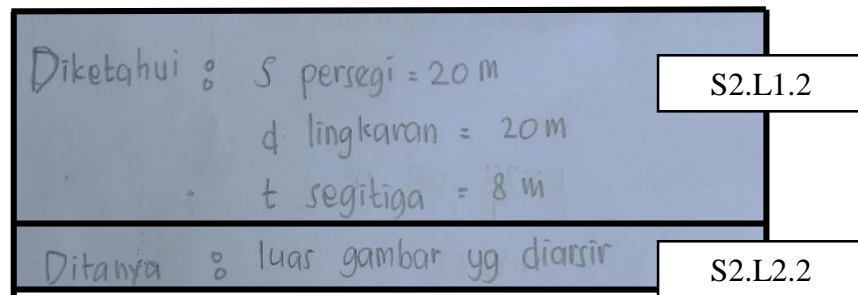 Diketahui : S persegi = 20 m
S2.L1.2
d lingkaran = 20 m
t segitiga = 8 m
Ditanya : luas gambar yg diarsir
S2.L2.2